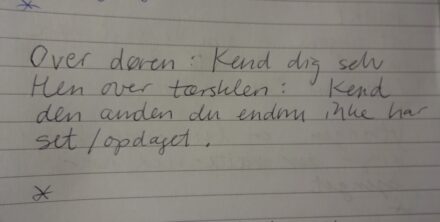 Over døren: Kend dig selv
Hen over tærsklen: Kend
den anden du endnu ikke har
set/opdaget.